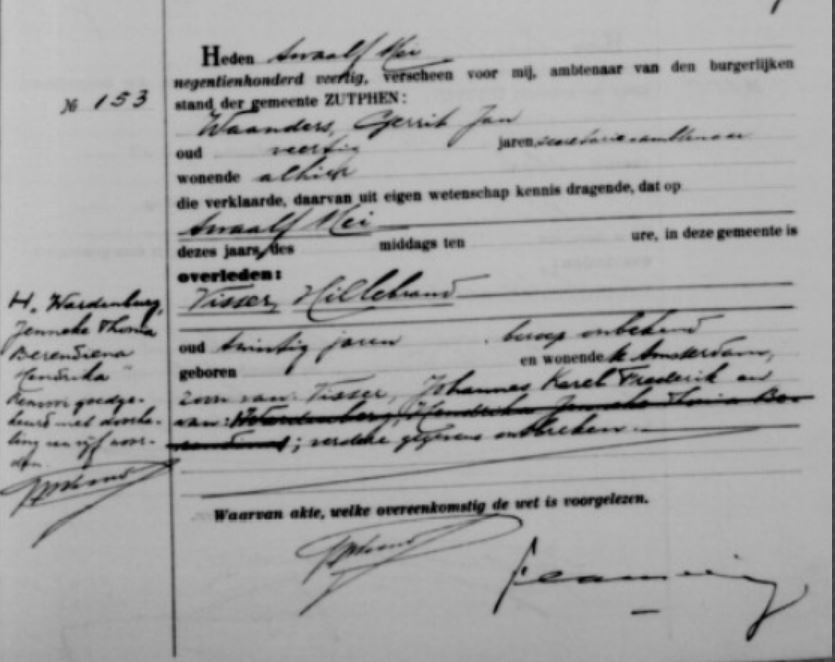 Heden twaalf Mei
negentienhonderd veertig, verscheen voor mij, ambtenaar van den burgerlijken
№ 153
stand der gemeente ZUTPHEN:
Waanders, Gerrit Jan
oud veertig jaren, secretarieambtenaar
wonende alhier
die verklaarde, daarvan uit eigen wetenschap kennis dragende, dat op
twaalf Mei
dezes jaars, des middags ten ure, in deze gemeente is
overleden:
Visser, Hillebrand
oud twintig jaren beroep onbekend
geboren en wonende te Amsterdam,
zoon van: Visser, Johannes Karel Frederik en
van: Wardenburg, Hendrika Jenneke Thonia Be-
rendiena; verdere gegevens ontbreken.
H. Wardenburg,
Jenneke Thonia
Berendiena
Hendrika
Renvooi goedge-
keurd met doorha-
ling van vijf woor-
den.
Waarvan akte, welke overeenkomstig de wet is voorgelezen.